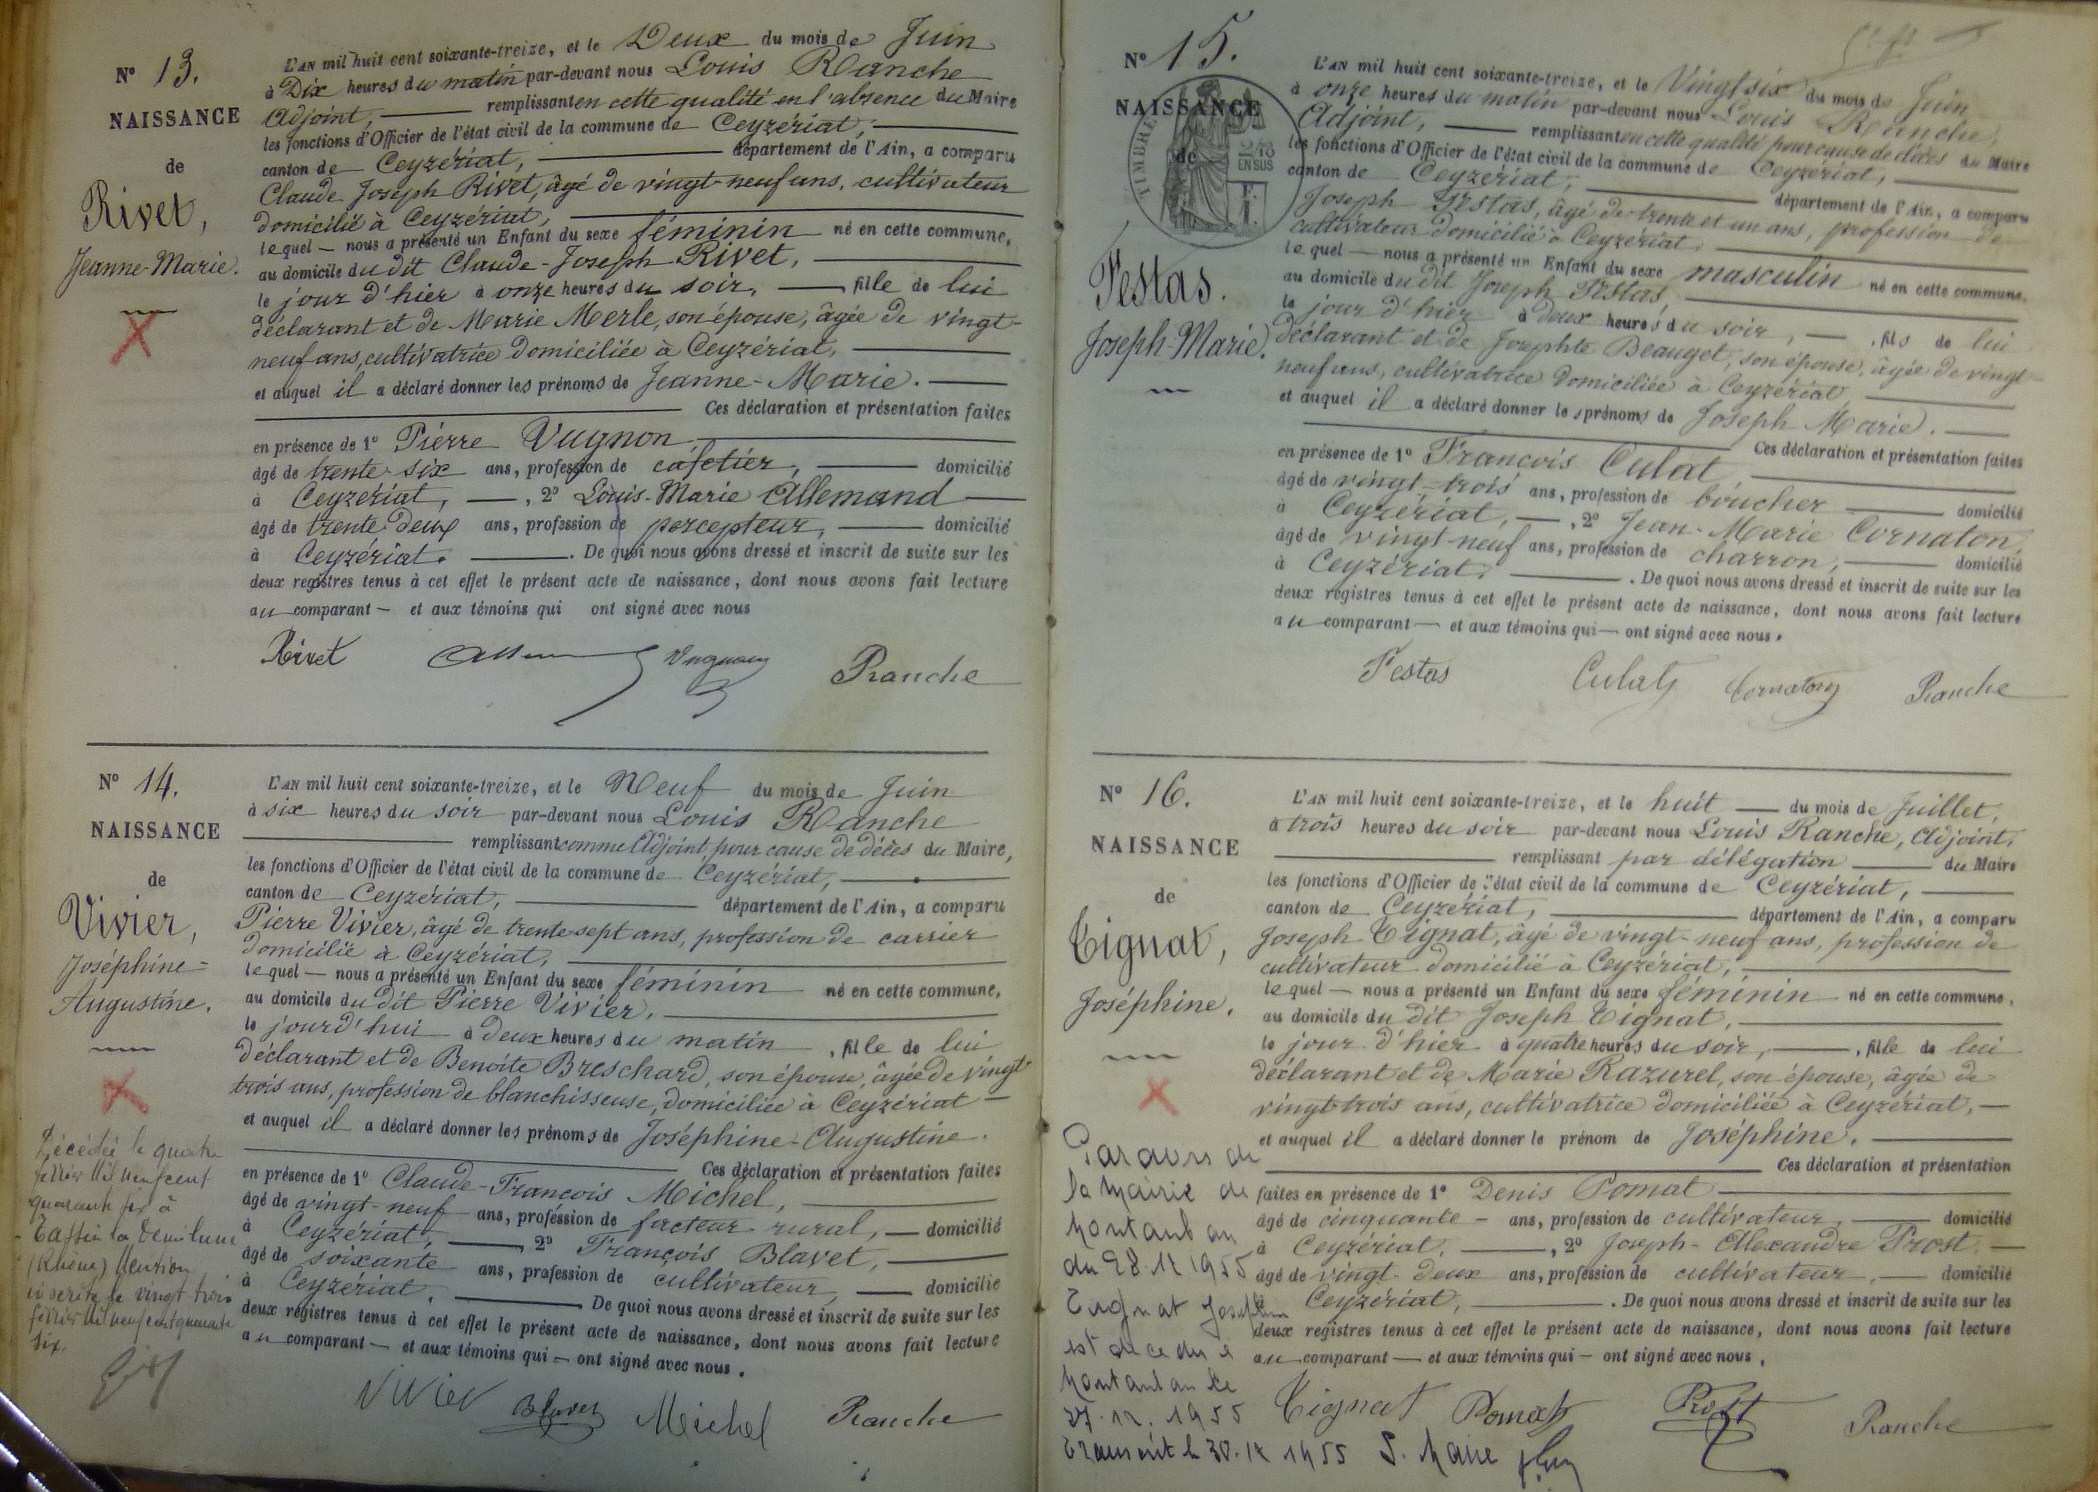 N° 13.
NAISSANCE
de
Rivet,
Jeanne-Marie.
L'AN mil huit cent soixante-treize, et le Deux du mois de Juin
à Dix heures du matin par-devant nous Louis Ranche
Adjoint, remplissant en cette qualité en l'absence du Maire
les fonctions d'Officier de l'état civil de la commune de Ceyzériat,
canton de Ceyzériat, département de l'Ain, a comparu
Claude Joseph Rivet, âgé de vingt-neuf ans, cultivateur
domicilié à Ceyzériat,
lequel — nous a présenté un Enfant du sexe féminin né en cette commune,
au domicile du dit Claude-Joseph Rivet,
le jour d'hier à onze heures du soir, fille de lui
déclarant et de Marie Merle, son épouse, âgée de vingt-
neuf ans, cultivatrice domiciliée à Ceyzériat,
et auquel il a déclaré donner les prénoms de Jeanne-Marie.
Ces déclaration et présentation faites
en présence de 1° Pierre Vugnon
âgé de trente-six ans, profession de cafetier, domicilié
à Ceyzériat, , 2° Louis-Marie Allemand
âgé de trente-deux ans, profession de percepteur, domicilié
à Ceyzériat. . De quoi nous avons dressé et inscrit de suite sur les
deux registres tenus à cet effet le présent acte de naissance, dont nous avons fait lecture
au comparant — et aux témoins qui ont signé avec nous
Rivet Vugnon Ranche
N° 14.
NAISSANCE
de
Vivier,
Joséphine-
Augustine.
Décédée le quatre
février mil neuf cent
quarante six à
Tassin la Demi lune
(Rhône) Mention
inscrite le vingt trois
février mil neuf cent quarante
six.
L'AN mil huit cent soixante-treize, et le Neuf du mois de Juin
à six heures du soir par-devant nous Louis Ranche
remplissant comme Adjoint, pour cause de décès du Maire,
les fonctions d'Officier de l'état civil de la commune de Ceyzériat,
canton de Ceyzériat, département de l'Ain, a comparu
Pierre Vivier, âgé de trente-sept ans, profession de carrier
domicilié à Ceyzériat,
lequel — nous a présenté un Enfant du sexe féminin né en cette commune,
au domicile du dit Pierre Vivier,
le jourd'hui à deux heures du matin , fille de lui
déclarant et de Benoite Breschard, son épouse, âgée de vingt-
trois ans, profession de blanchisseuse, domiciliée à Ceyzériat —
et auquel il a déclaré donner les prénoms de Joséphine-Augustine.
Ces déclaration et présentation faites
en présence de 1° Claude-François Michel,
âgé de vingt-neuf ans, profession de facteur rural, — domicilié
à Ceyzériat, 2° François Blavet,
âgé de soixante ans, profession de cultivateur, — domicilié
à Ceyzériat. De quoi nous avons dressé et inscrit de suite sur les
deux registres tenus à cet effet le présent acte de naissance, dont nous avons fait lecture
au comparant — et aux témoins qui — ont signé avec nous.
Vivier Blavet Michel Ranche
N° 15.
NAISSANCE
de
TIMBRE
2/10
EN SUS
Festas.
Joseph-Marie.
L'AN mil huit cent soixante-treize, et le Vingt six du mois de Juin
à onze heures du matin par-devant nous Louis Ranche,
Adjoint, remplissant en cette qualité pour cause de décès du Maire
les fonctions d'Officier de l'état civil de la commune de Ceyzériat,
canton de Ceyzériat, département de l'Ain, a comparu
Joseph Festas, âgé de trente et un ans, profession de
cultivateur domicilié à Ceyzériat.
lequel — nous a présenté un Enfant du sexe masculin né en cette commune,
au domicile du dit Joseph Festas,
le jour d'hier à deux heures du soir, , fils de lui
déclarant et de Josephte Beauget, son épouse, âgée de vingt-
neuf ans, cultivatrice domiciliée à Ceyzériat
et auquel il a déclaré donner les prénoms de Joseph Marie.
Ces déclaration et présentation faites
en présence de 1° François Culat
âgé de vingt-trois ans, profession de boucher domicilié
à Ceyzériat, , 2° Jean-Marie Cornaton,
âgé de vingt-neuf ans, profession de charron, domicilié
à Ceyzériat. . De quoi nous avons dressé et inscrit de suite sur les
deux registres tenus à cet effet le présent acte de naissance, dont nous avons fait lecture
au comparant — et aux témoins qui — ont signé avec nous.
Festas Culat Cornaton Ranche
N° 16.
NAISSANCE
de
Tignat,
Joséphine.
Par avis de
la mairie de
Montauban
du 28.12 1955
Tignat Josephine
est décédée à
Montauban le
27.12.1955
Transcrit le 30.12 1955 S. Maire
L'AN mil huit cent soixante-treize, et le huit du mois de Juillet,
à trois heures du soir par-devant nous Louis Ranche, Adjoint,
remplissant par délégation du Maire
les fonctions d'Officier de l'état civil de la commune de Ceyzériat,
canton de Ceyzériat, département de l'Ain, a comparu
Joseph Tignat, âgé de vingt-neuf ans, profession de
cultivateur domicilié à Ceyzériat,
lequel — nous a présenté un Enfant du sexe féminin né en cette commune,
au domicile du dit Joseph Tignat,
le jour d'hier à quatre heures du soir, , fille de lui
déclarant et de Marie Razurel, son épouse, âgée de
vingt-trois ans, cultivatrice domiciliée à Ceyzériat, —
et auquel il a déclaré donner le prénom de Joséphine.
Ces déclaration et présentation
faites en présence de 1° Denis Pomat
âgé de cinquante - ans, profession de cultivateur, domicilié
à Ceyzériat, , 2° Joseph-Alexandre Prost —
âgé de vingt-deux ans, profession de cultivateur, domicilié
à Ceyzériat, . De quoi nous avons dressé et inscrit de suite sur les
deux registres tenus à cet effet le présent acte de naissance, dont nous avons fait lecture
au comparant — et aux témoins qui — ont signé avec nous.
Tignat Pomat Prost Ranche